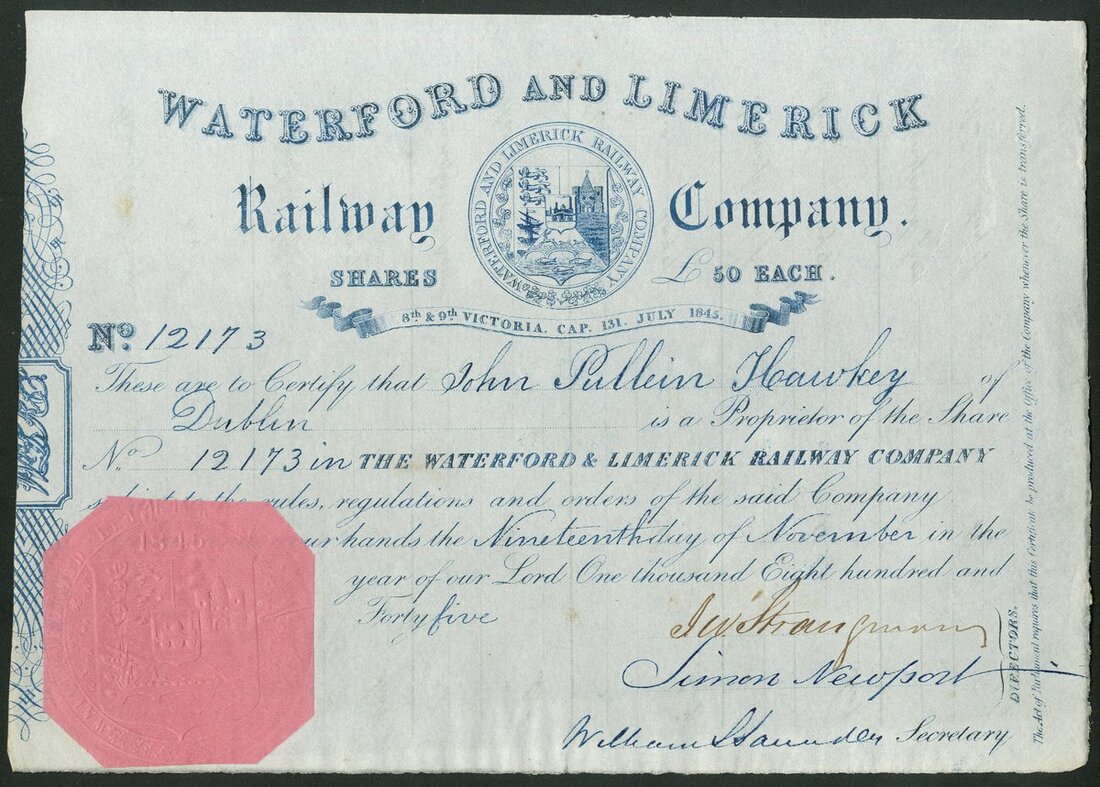 WATERFORD AND LIMERICK
WATERFORD AND LIMERICK RAILWAY COMPANY
Railway Company.
SHARES £ 50 EACH.
8th & 9th VICTORIA. CAP. 131. JULY 1845.
No. 12173
These are to Certify that John Pullein Hawkey of
Dublin is a Proprietor of the Share
No. 12173 in THE WATERFORD & LIMERICK RAILWAY COMPANY
subject to the rules, regulations and orders of the said Company
our hands the Nineteenth day of November in the
year of our Lord One thousand Eight hundred and
Forty five
1845
J W Strangman
Simon Newport
DIRECTORS.
William Saunders Secretary
The Act of Parliament requires that this Certificate be produced at the Office of the Company whenever the Share is transferred.